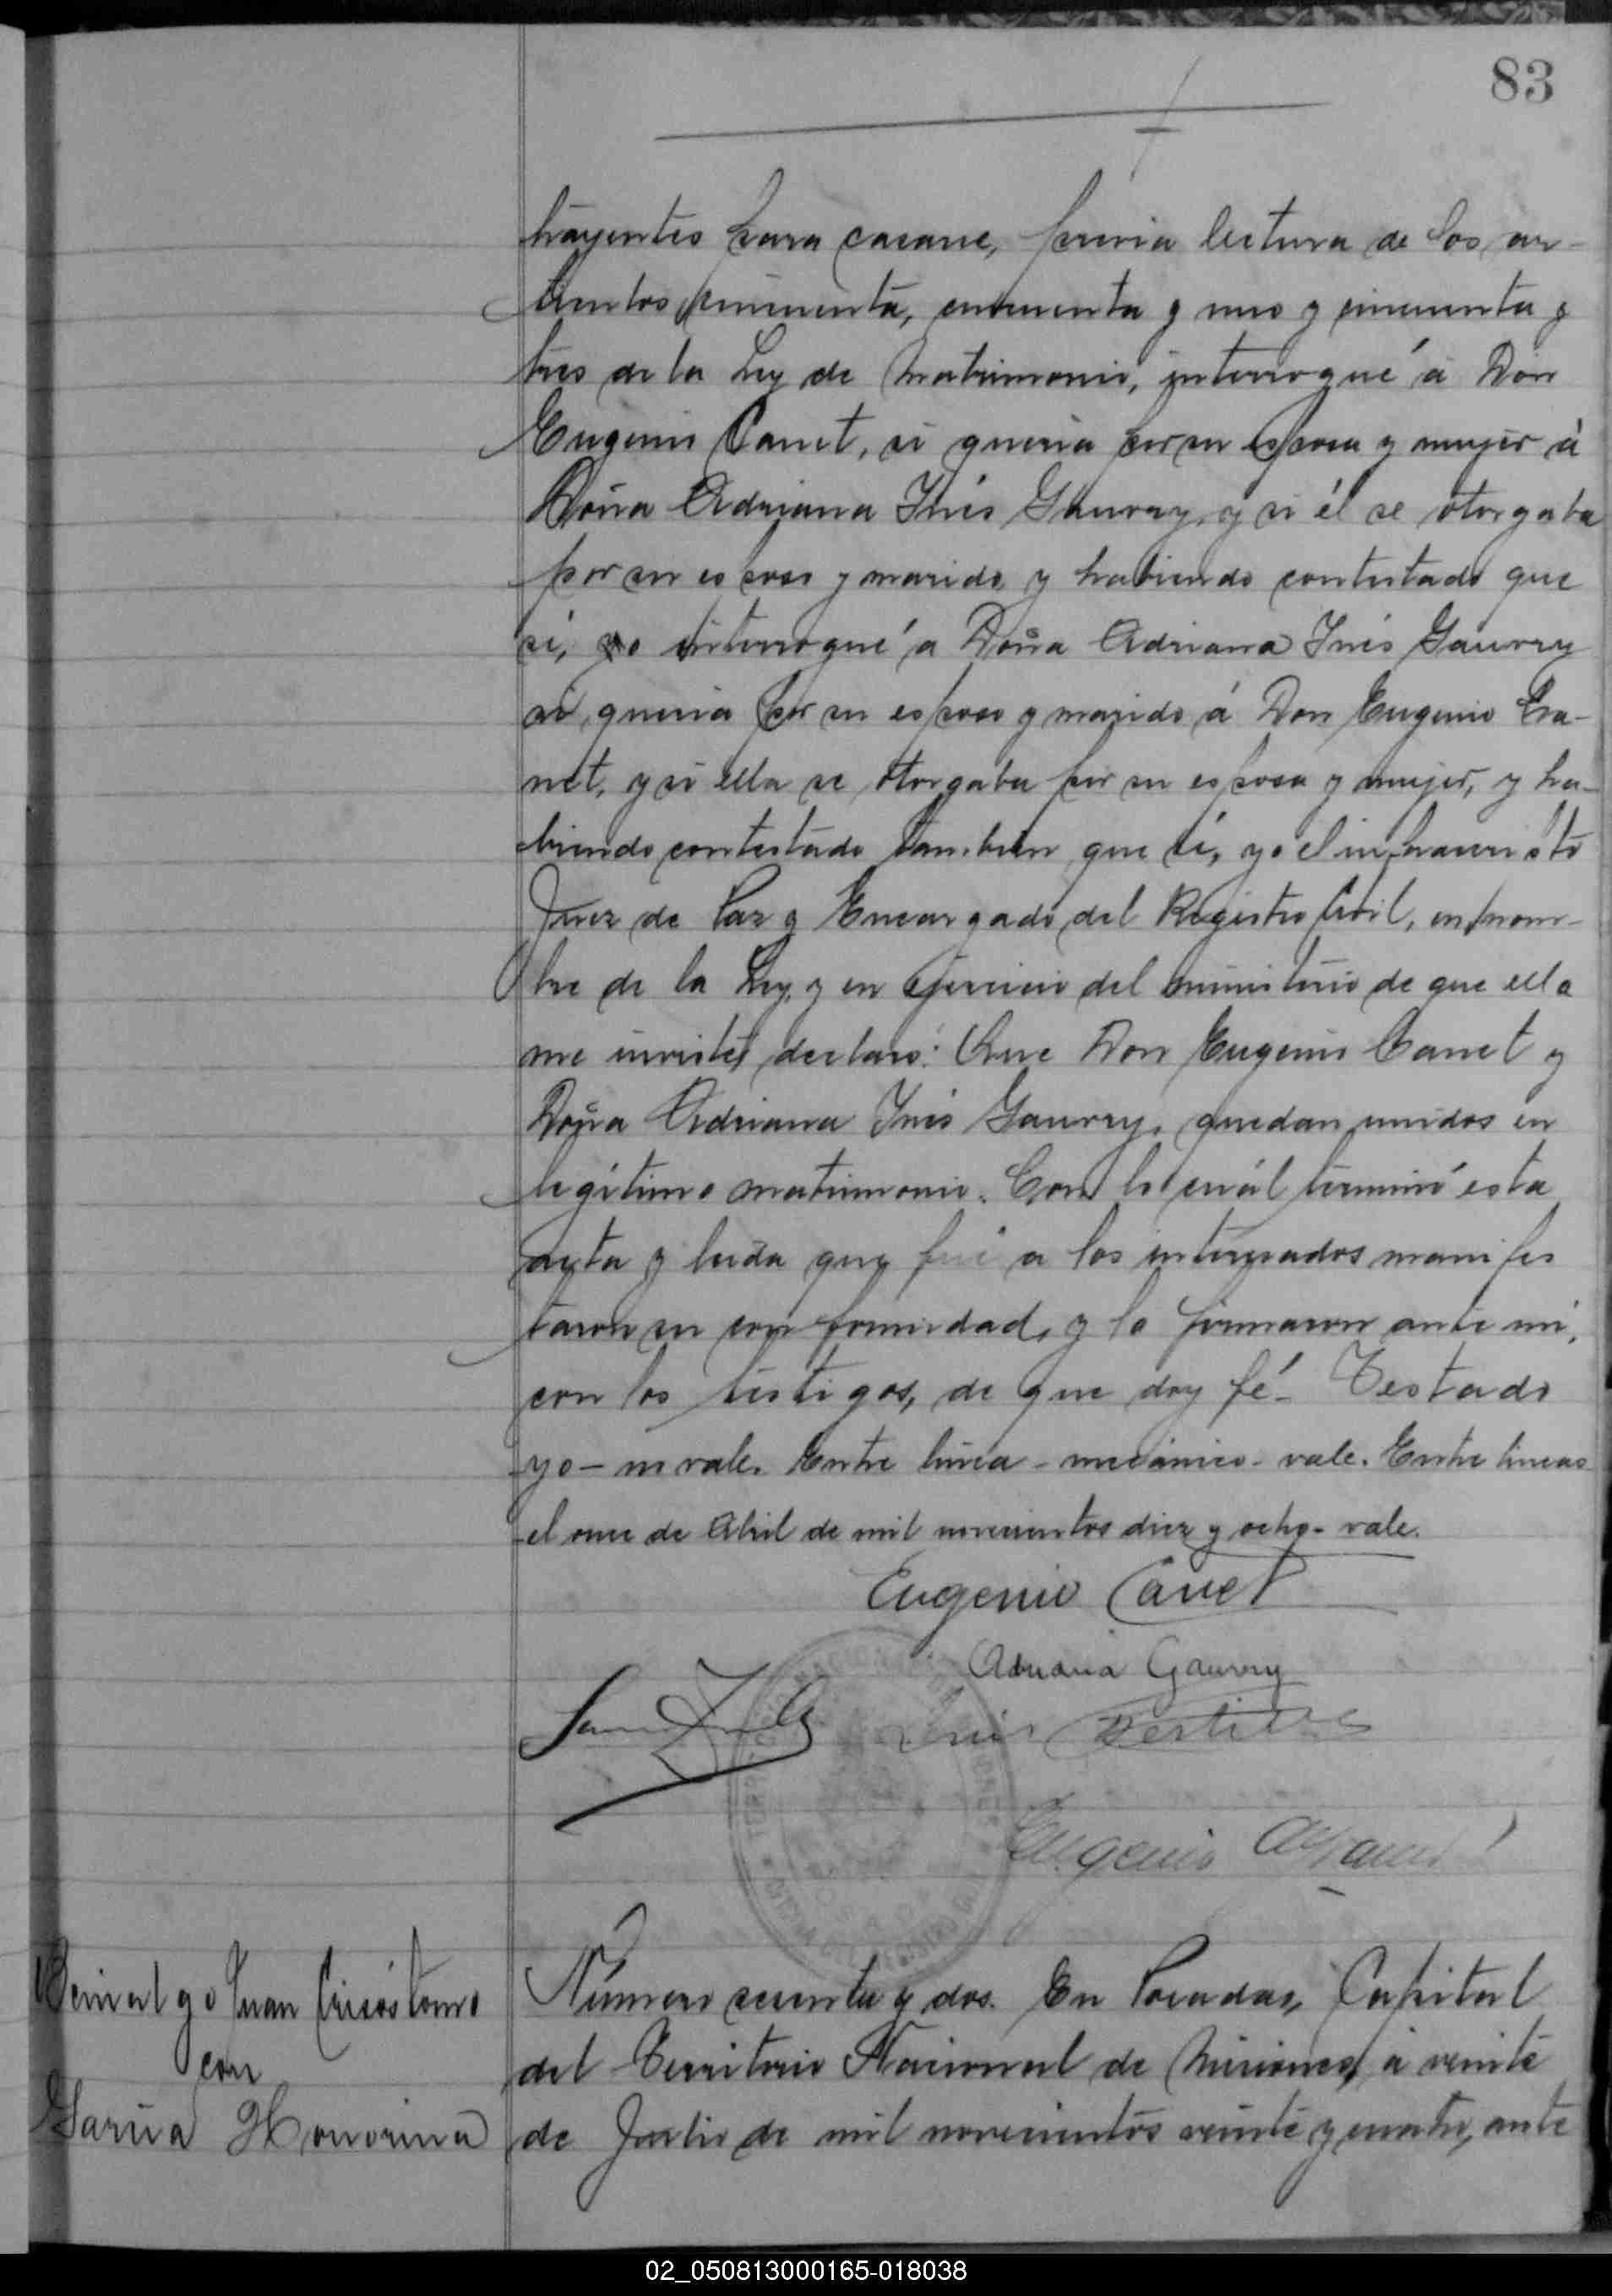 83
trayentes para casarse, previa lectura de los ar-
tículos cincuenta, cincuenta y uno y cincuenta y
tres de la Ley de Matrimonio, interrogué á Don
Eugenio Canet, si queria por su esposa y mujer á
Doña Adriana Inés Gauvry, y si él se otorgaba
por su esposo y marido, y habiendo contestado que
sí, yo interrogué a Doña Adriana Inés Gauvry
si queria por su esposo y marido á Don Eugenio Ca-
net, y si ella se otorgaba por su esposa y mujer, y ha-
biendo contestado tambien que sí, yo el infrascristo
Juez de Paz y Encargado del Registro Civil, en nom-
bre de la Ley, y en ejercicio del ministerio de que ella
me inviste, declaro: Que Don Eugenio Canet y
Doña Adriana Inés Gauvry, quedan unidos en
legítimo matrimonio. Con lo cuál terminó esta
acta y leida que fué a los interesados manifes
taron su conformidad, y la firmaron ante mí,
con los testigos, de que doy fé. Testado
-yo- no vale. Entre linea - mecánico - vale. Entre lineas
-el once de Abril de mil novecientos diez y ocho - vale.
Eugenio Canet
Adriana Gauvry
Luis
Eugenio
Juan Crisóstomo
con
García Honorina
Número sesenta y dos. En Posadas, Capital
del Territorio Nacional de Misiones, á veinte
de Julio de mil novecientos veinte y cuatro, ante
02_050813000165-018038